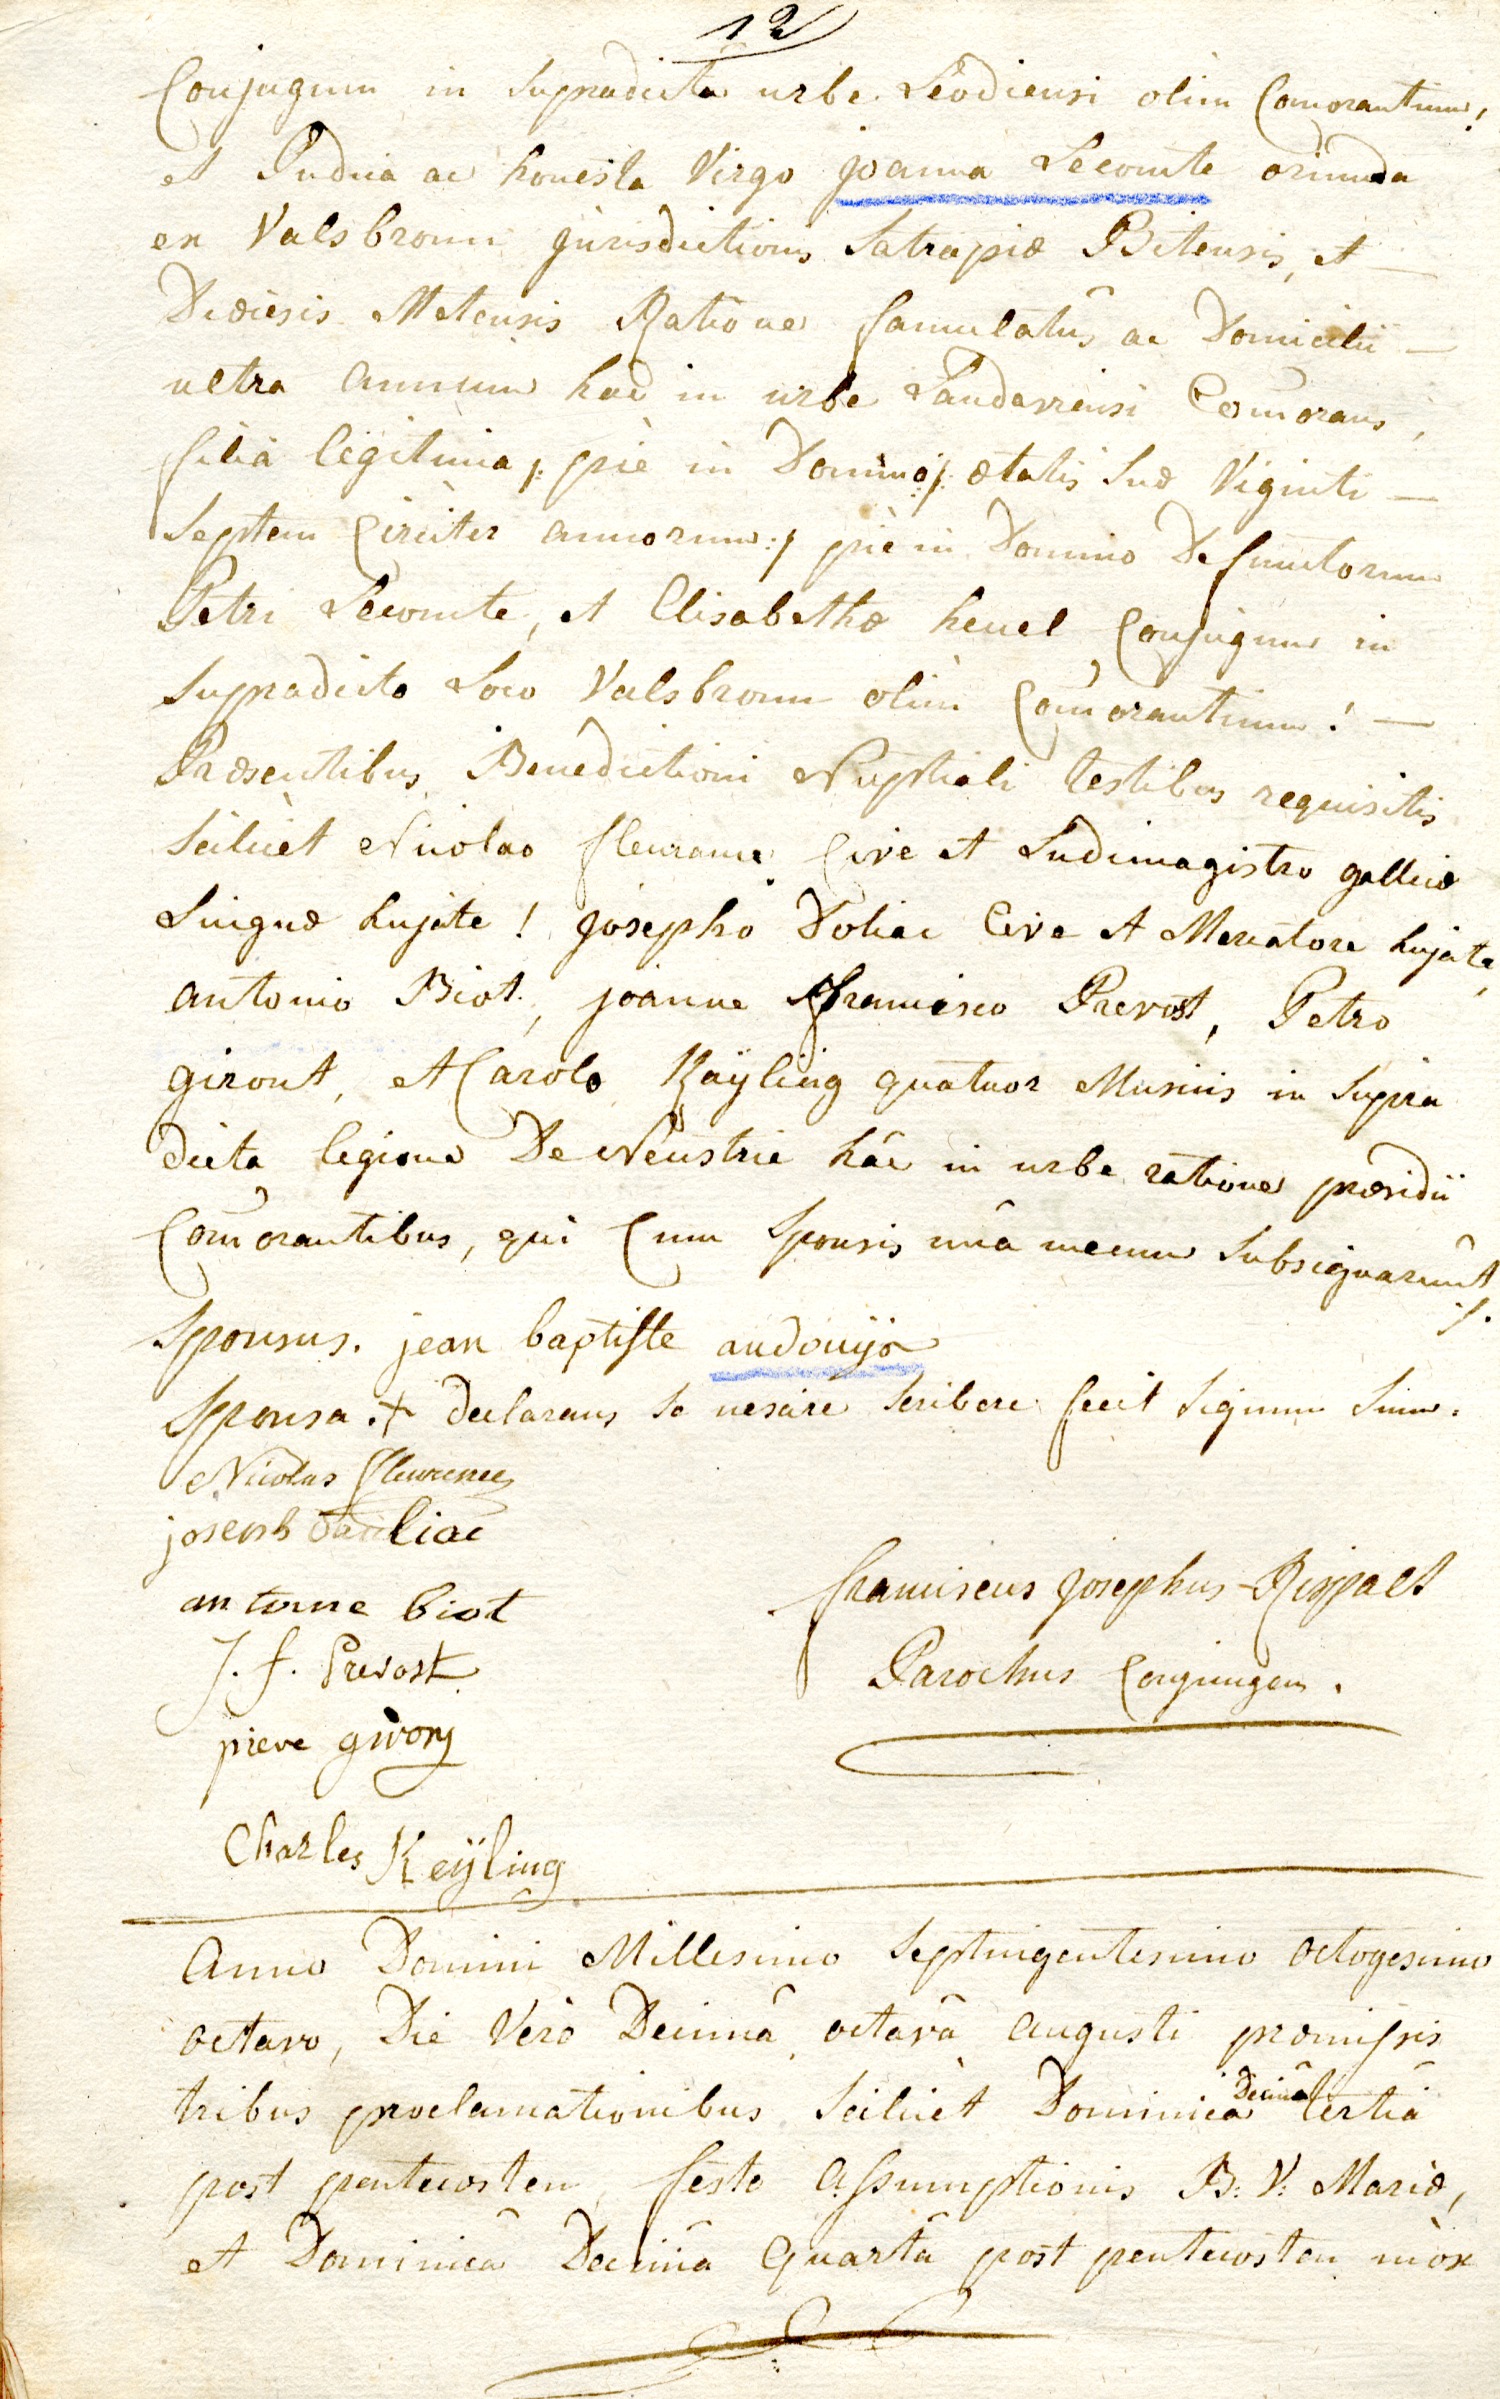 12
Conjugum in Supradicta urbe Leodiensi olim Comorantium!
et Pudica ac honesta Virgo joanna Lecomte oriunda
ex Valsbronn jurisdictionis Satrapiæ Bitensis, et —
Diœcesis Metensis Ratione famulatûs ac Domicilii —
ultra annum hac in urbe Landaviensi Comorans,
filia legitima /: piè in Domino :/ ætatis suæ Viginti —
Septem Circiter annorum :/ piè in Domino Defunctorum
Petri Lecomte, et Elisabethæ heuel Conjugum in
Supradicto Loco Valsbronn olim Comorantium! —
Præsentibus Benedictioni Nuptiali testibus requisitis
Scilicet Nicolao fleurance Cive et Ludimagistro gallicæ
Linguæ hujate! josepho Doliac Cive et Mercatore hujate,
antonio Biot, joanne francisco Prevost, Petro
giront, et Carolo Kaÿling quatuor Musicis in Supra
dicta legione De Neustrie hâc in urbe ratione præsidii
Comorantibus, qui Cum Sponsis unâ mecum Subsignarunt
Sponsus. jean baptiste audouijo
Sponsa + declarans se nescire scribere fecit signum suum.
Nicolas fleurence
joseph dauliac
antoine biot
J. f. Prevost
piere girony
Charles Keÿling
franciscus josephus Rispalt
Parochus Conjungens.
Anno Domini Millesimo Septingentesimo octogesimo
octavo, Die Verò Decimâ octavâ augusti præmissis
tribus proclamationibus Scilicet Dominicâ Decimâ tertiâ
post pentecosten, festo assumptionis B: V: Mariæ,
et Dominicâ Decimâ quartâ post pentecosten mòx